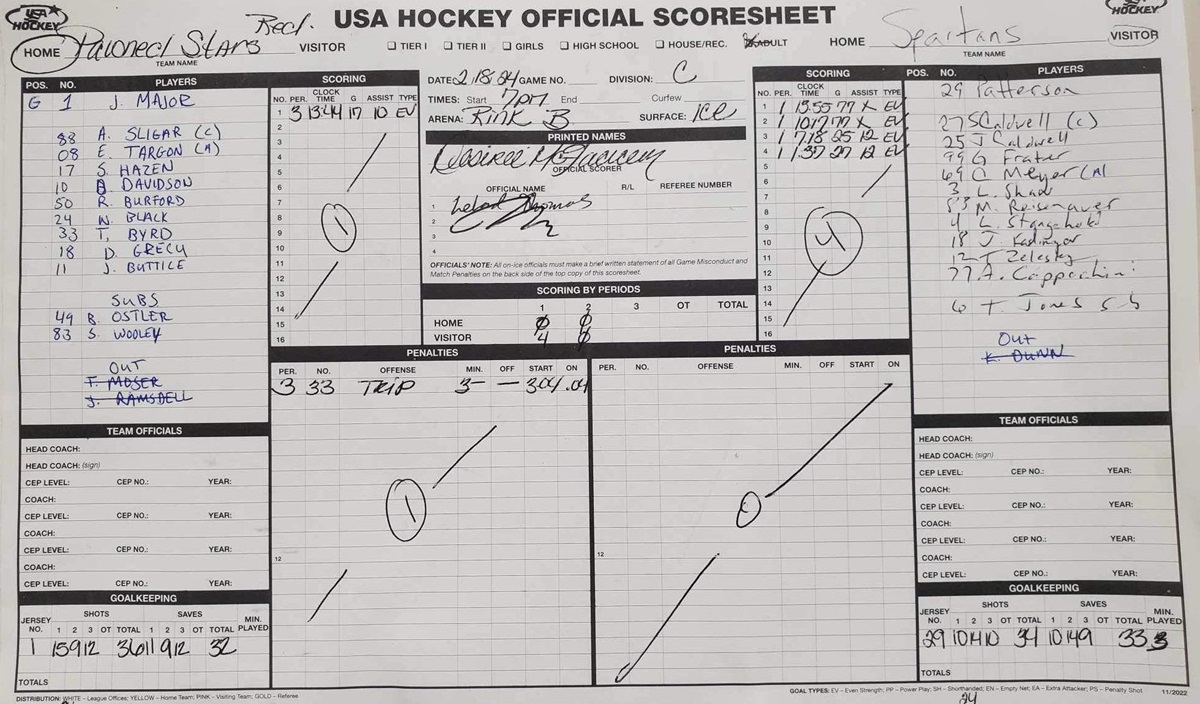 USA HOCKEY OFFICIAL SCORESHEET
USA HOCKEY
HOCKEY
HOME Pawned Stars Red.
TEAM NAME
VISITOR
TIER I TIER II GIRLS HIGH SCHOOL HOUSE/REC. ADULT
HOME Spartans VISITOR
TEAM NAME
POS. NO. PLAYERS
G 1 J. MAJOR
88 A. SLIGAR (C)
08 E. TARGON (A)
17 S. HAZEN
10 B. DAVIDSON
50 R. BURFORD
24 W. BLACK
33 T. BYRD
18 D. GRECU
11 J. BUTTILE
SUBS
49 B. OSTLER
83 S. WOOLEY
OUT
T. MOSER
J. RAMSDELL
TEAM OFFICIALS
HEAD COACH:
HEAD COACH: (sign)
CEP LEVEL: CEP NO.: YEAR:
COACH:
CEP LEVEL: CEP NO.: YEAR:
COACH:
CEP LEVEL: CEP NO.: YEAR:
COACH:
CEP LEVEL: CEP NO.: YEAR:
GOALKEEPING
SHOTS SAVES
JERSEY NO. 1 2 3 OT TOTAL 1 2 3 OT TOTAL MIN. PLAYED
1 15 9 12 36 11 9 12 32
TOTALS
SCORING
NO. PER. CLOCK TIME G ASSIST TYPE
1 3 13:44 17 10 EV
2
3
4
5
6
7
8
9
10
11
12
13
14
15
16
1
DATE: 2/18/24 GAME NO. DIVISION: C
TIMES: Start 7pm End Curfew
ARENA: Rink B SURFACE: Ice
PRINTED NAMES
OFFICIAL SCORER
OFFICIAL NAME R/L REFEREE NUMBER
1 Thomas
2
3
4
OFFICIALS' NOTE: All on-ice officials must make a brief written statement of all Game Misconduct and
Match Penalties on the back side of the top copy of this scoresheet.
SCORING BY PERIODS
1 2 3 OT TOTAL
HOME 0 0
VISITOR 4 0
SCORING
NO. PER. CLOCK TIME G ASSIST TYPE
1 1 15:55 77 X EV
2 1 10:17 77 X EV
3 1 7:18 25 12 EV
4 1 1:37 27 12 EV
5
6
7
8
9
10
11
12
13
14
15
16
4
PENALTIES
PER. NO. OFFENSE MIN. OFF START ON
3 33 TRIP 3 – – 3:04 .04
1
12
PENALTIES
PER. NO. OFFENSE MIN. OFF START ON
0
12
POS. NO. PLAYERS
29 Patterson
27 S Caldwell (c)
25 J Caldwell
99 G Frater
69 C Meyer (A)
3 L. Shaw
83 M. Reisenauer
4 L.
18 J.
12 T Zelesky
77 A.
6 T. Jones sub
Out
K. DUNN
TEAM OFFICIALS
HEAD COACH:
HEAD COACH: (sign)
CEP LEVEL: CEP NO.: YEAR:
COACH:
CEP LEVEL: CEP NO.: YEAR:
COACH:
CEP LEVEL: CEP NO.: YEAR:
COACH:
CEP LEVEL: CEP NO.: YEAR:
GOALKEEPING
SHOTS SAVES
JERSEY NO. 1 2 3 OT TOTAL 1 2 3 OT TOTAL MIN. PLAYED
29 10 14 10 34 10 14 9 33
TOTALS
DISTRIBUTION: WHITE – League Offices; YELLOW – Home Team; PINK – Visiting Team; GOLD – Referee
GOAL TYPES: EV – Even Strength; PP – Power Play; SH – Shorthanded; EN – Empty Net; EA – Extra Attacker; PS – Penalty Shot 11/2022
24